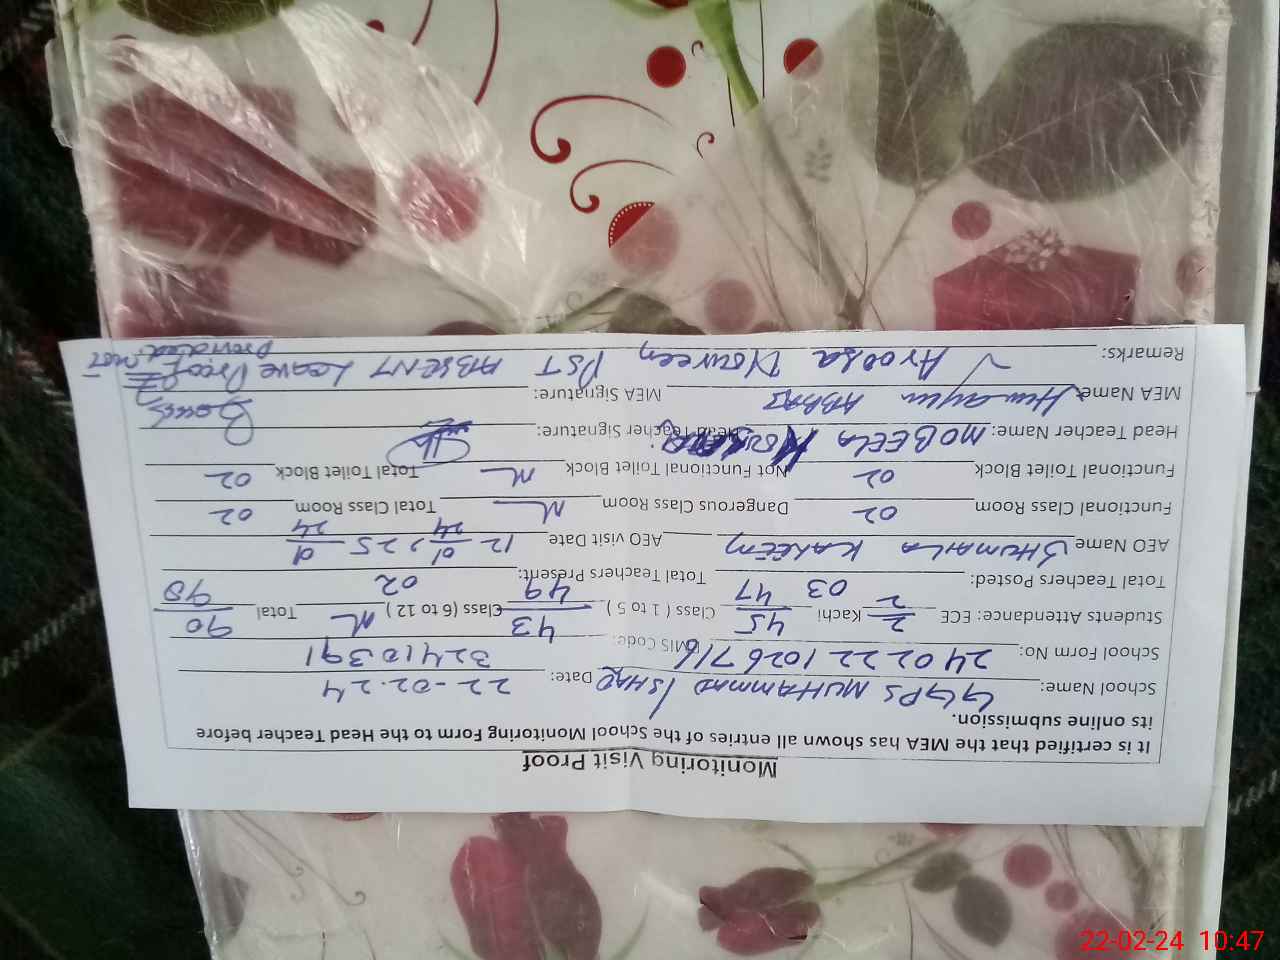 Monitoring Visit Proof
It is certified that the MEA has shown all entries of the School Monitoring Form to the Head Teacher before
its online submission.
School Name: GGPS MUHAMMAD ISHAQ Date: 22-02-24
School Form No: 2402221026716 EMIS Code: 32410391
Students Attendance: ECE 2/2 Kachi 45/47 Class ( 1 to 5 ) 43/49 Class (6 to 12 ) Total 90/98
Total Teachers Posted: 03 Total Teachers Present: 02
AEO Name SHUMAILA KAREEM AEO visit Date 12
Functional Class Room 02 Dangerous Class Room Total Class Room 02
Functional Toilet Block 02 Not Functional Toilet Block Total Toilet Block 02
Head Teacher Name: MOBEELA Head Teacher Signature:
MEA Name Humayun ABBAS MEA Signature:
Remarks: Aroosa Noureen PST ABSENT Leave Proof not
provided
22-02-24 10:47